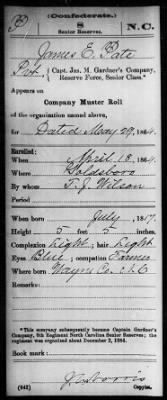 P
(Confederate.)
8
Senior Reserves.
N. C.
James E. Pate
Pvt. { Capt. Jas. M. Gardner's Company, Reserve Force, Senior Class.*
Appears on
Company Muster Roll
of the organization named above,
for Dated May 29, 1864.
Enrolled:
When April 18, 1864.
Where Goldsboro
By whom T. J. Wilson
Period
When born July, 1817
Height 5 feet 5 inches.
Complexion Light; hair, Light
Eyes Blue; occupation Farmer
Where born Wayne Co. N.C.
Remarks:
*This company subsequently became Captain Gardner's
Company, 8th Regiment North Carolina Senior Reserves; the
regiment was organized about December 2, 1864.
Book mark:
(642)
Copyist.